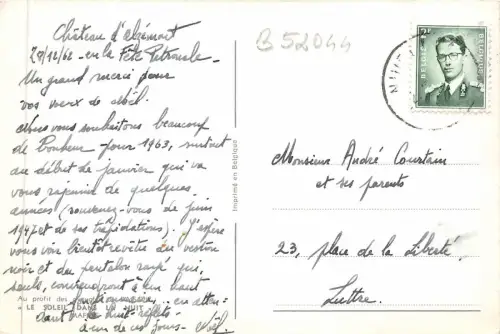 Château d'Alzémont
29/12/62 - en la Fête Patronale -
Un grand merci pour
vos voeux de Noël.
Nous vous souhaitons beaucoup
de bonheur pour 1963, surtout
au début de janvier qui va
vous rajeunir de quelques
années (souvenez-vous de juin
1947 et de ses trépidations). J'espère
vous voir bientôt revêtu du veston
noir et du pantalon rayé qui,
seuls, conviendront à un haut
fonctionnaire, en atten-
dant
à un de ces jours - Noël.
Au profit des
« LE SOLEIL DANS LA NUIT »
Imprimé en Belgique
B 52044
BELGIE BELGIQUE
Monsieur André Courtain
et ses parents
23, place de la Liberté,
Luttre.